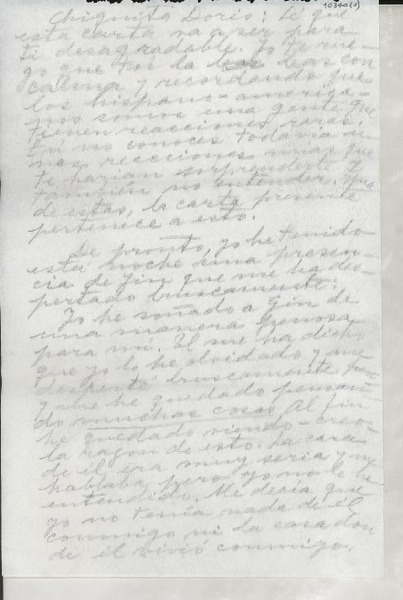 Chiquita Doris: Sé que
esta carta va a ser para
ti desagradable. Yo te rue-
go que tú la leas con
calma y recordando que
los hispano-america-
nos somos una gente que
tienen reacciones raras.
Tú no conoces todavía al-
nas reacciones mías que
te harían sorprenderte y
también no entender. Una
de estas, la carta presente
pertenece a esto.
De pronto, yo he tenido
esta noche una presen-
cia de Yin que me ha des-
pertado bruscamente.
Yo he soñado a Yin de
una manera penosa
para mí. El me ha dicho
que yo lo he olvidado y me
desperté bruscamente
y me he quedado pensan-
do muchas cosas. Al fin
he quedado viendo - creo -
la razón de esto. La cara
de él era muy seria y me
hablaba, pero yo no le he
entendido. Me decía que
yo no tenía nada de él
conmigo ni la casa don-
de él vivió conmigo.